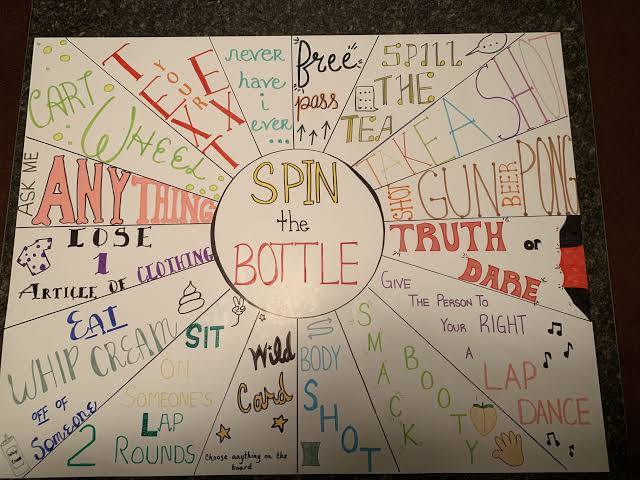 SPIN
the
BOTTLE
free
pass
SPILL
THE
TEA
TAKE A SHOT
SHOT
GUN
BEER
PONG
TRUTH or
DARE
GIVE
THE PERSON TO
YOUR RIGHT
A
LAP
DANCE
SMACK
BOOTY
BODY
SHOT
Wild
Card
Choose anything on the
board
SIT
ON
SOMEONE'S
LAP
2 ROUNDS
EAT
WHIP CREAM
OFF OF
Someone
LOSE
1
ARTICLE OF CLOTHING
ASK ME
ANYTHING
CART
WHEEL
TEXT
YOUR
EX
never
have
i
ever...